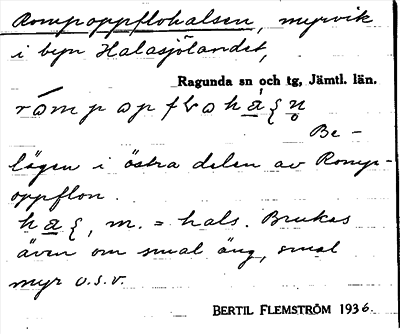 Rompoppflohalsen, myrvik
i byn Halasjölandet,
Ragunda sn och tg, Jämtl. län.
Be-
lägen i östra delen av Romp-
oppflon.
m. = hals. Brukas
även om smal äng, smal
myr o.s.v.
BERTIL FLEMSTRÖM 1936.